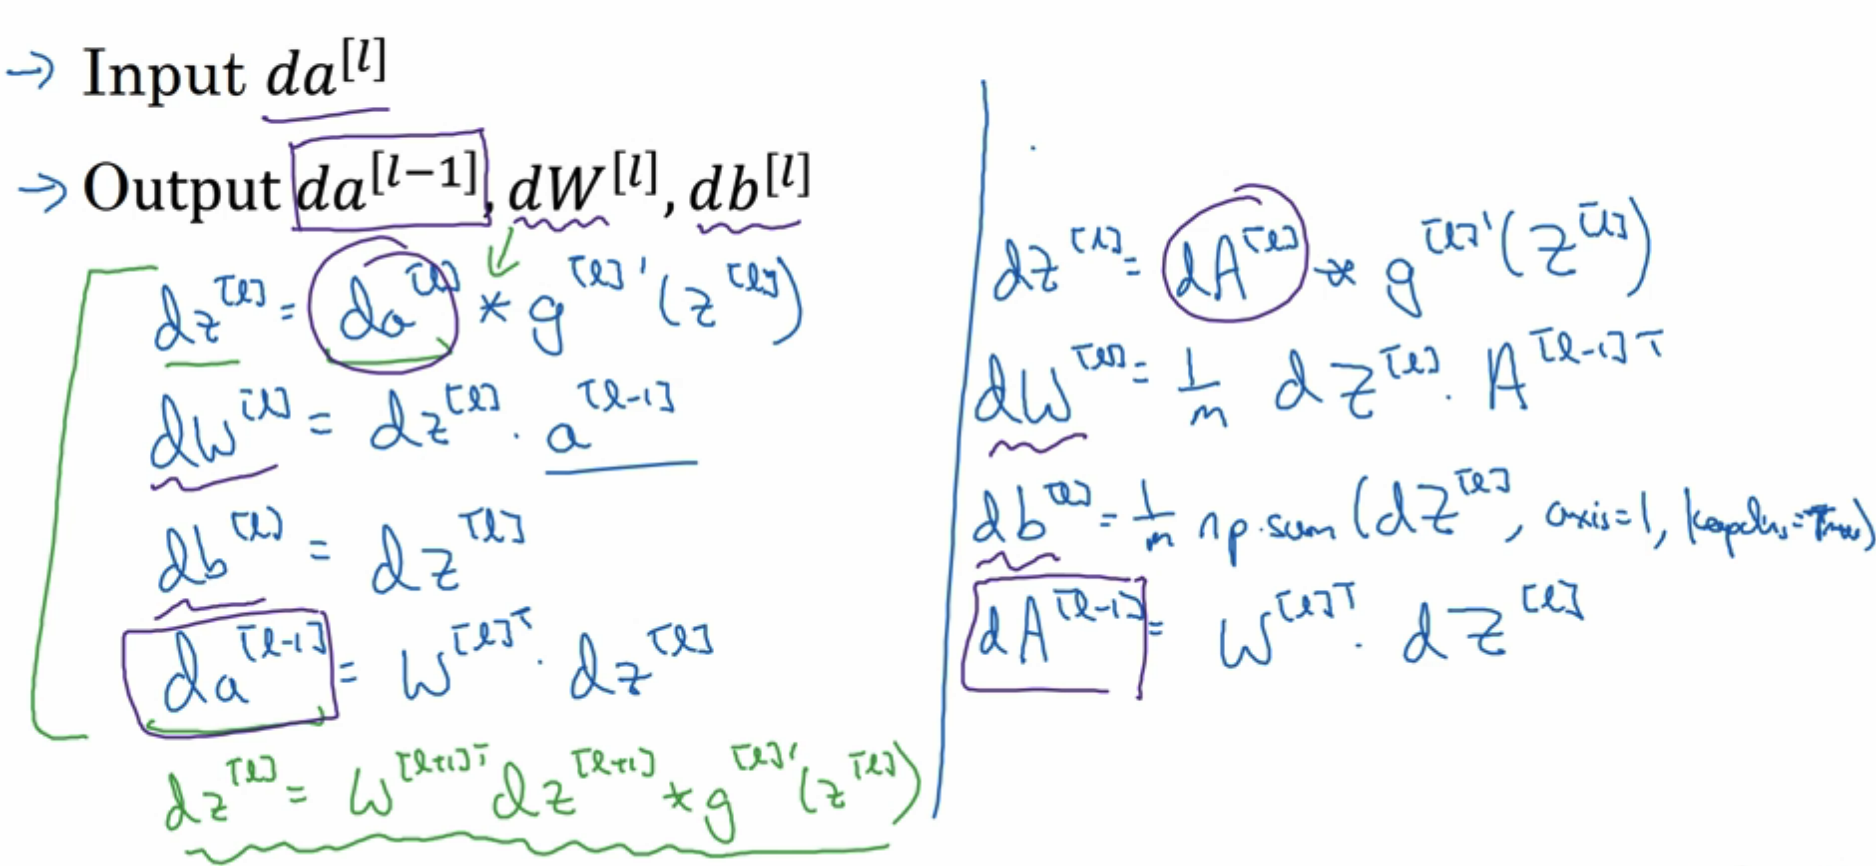 → Input da^[l]
→ Output da^[l-1], dW^[l], db^[l]
dz^[l] = da^[l] * g^[l]'(z^[l])
dW^[l] = dz^[l] · a^[l-1]
db^[l] = dz^[l]
da^[l-1] = W^[l]T · dz^[l]
dz^[l] = W^[l+1]T dz^[l+1] * g^[l]'(z^[l])
dz^[l] = dA^[l] * g^[l]'(z^[l])
dW^[l] = 1/m dZ^[l] · A^[l-1]T
db^[l] = 1/m np.sum(dZ^[l], axis=1, keepdims=True)
dA^[l-1] = W^[l]T · dZ^[l]